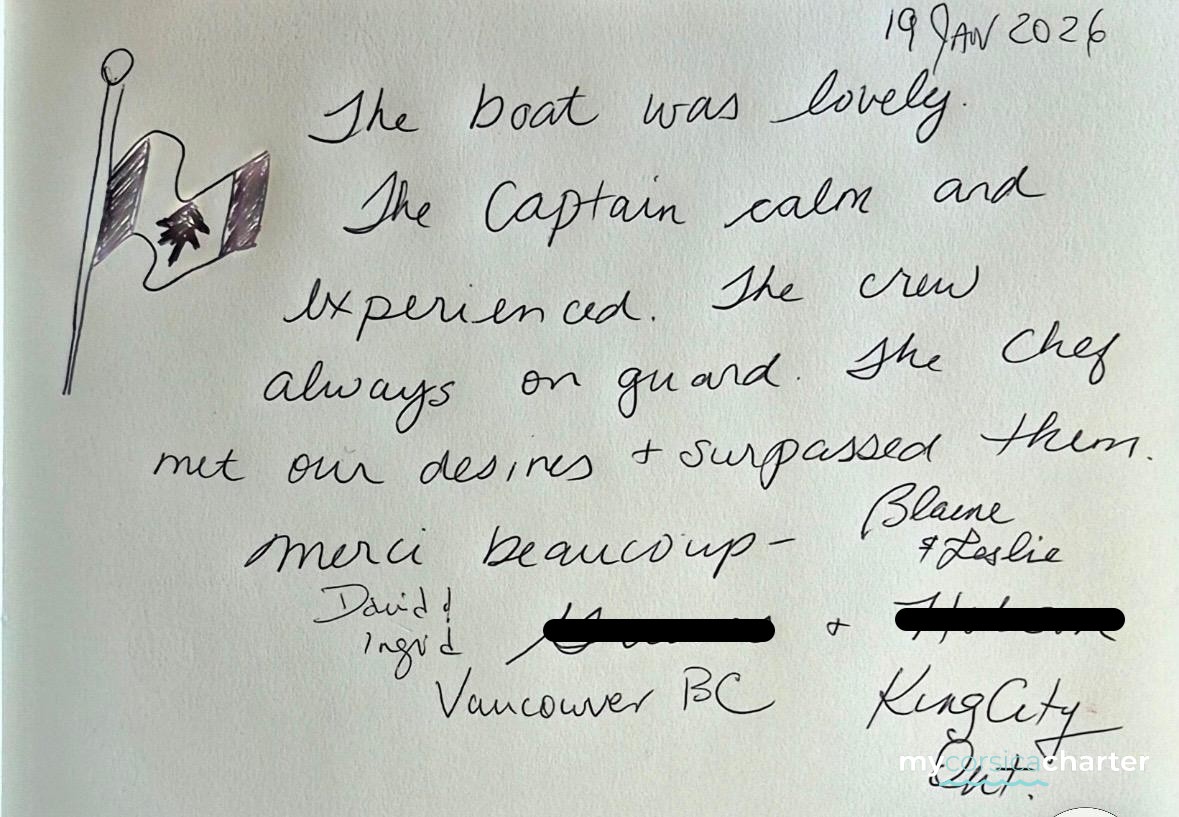 19 JAN 2026
The boat was lovely.
The Captain calm and
experienced. The crew
always on guard. The Chef
met our desires + surpassed them.
merci beaucoup -
Blaine
& Leslie
David &
Ingrid
+
Vancouver BC
King City
Ont.
mycorsicacharter